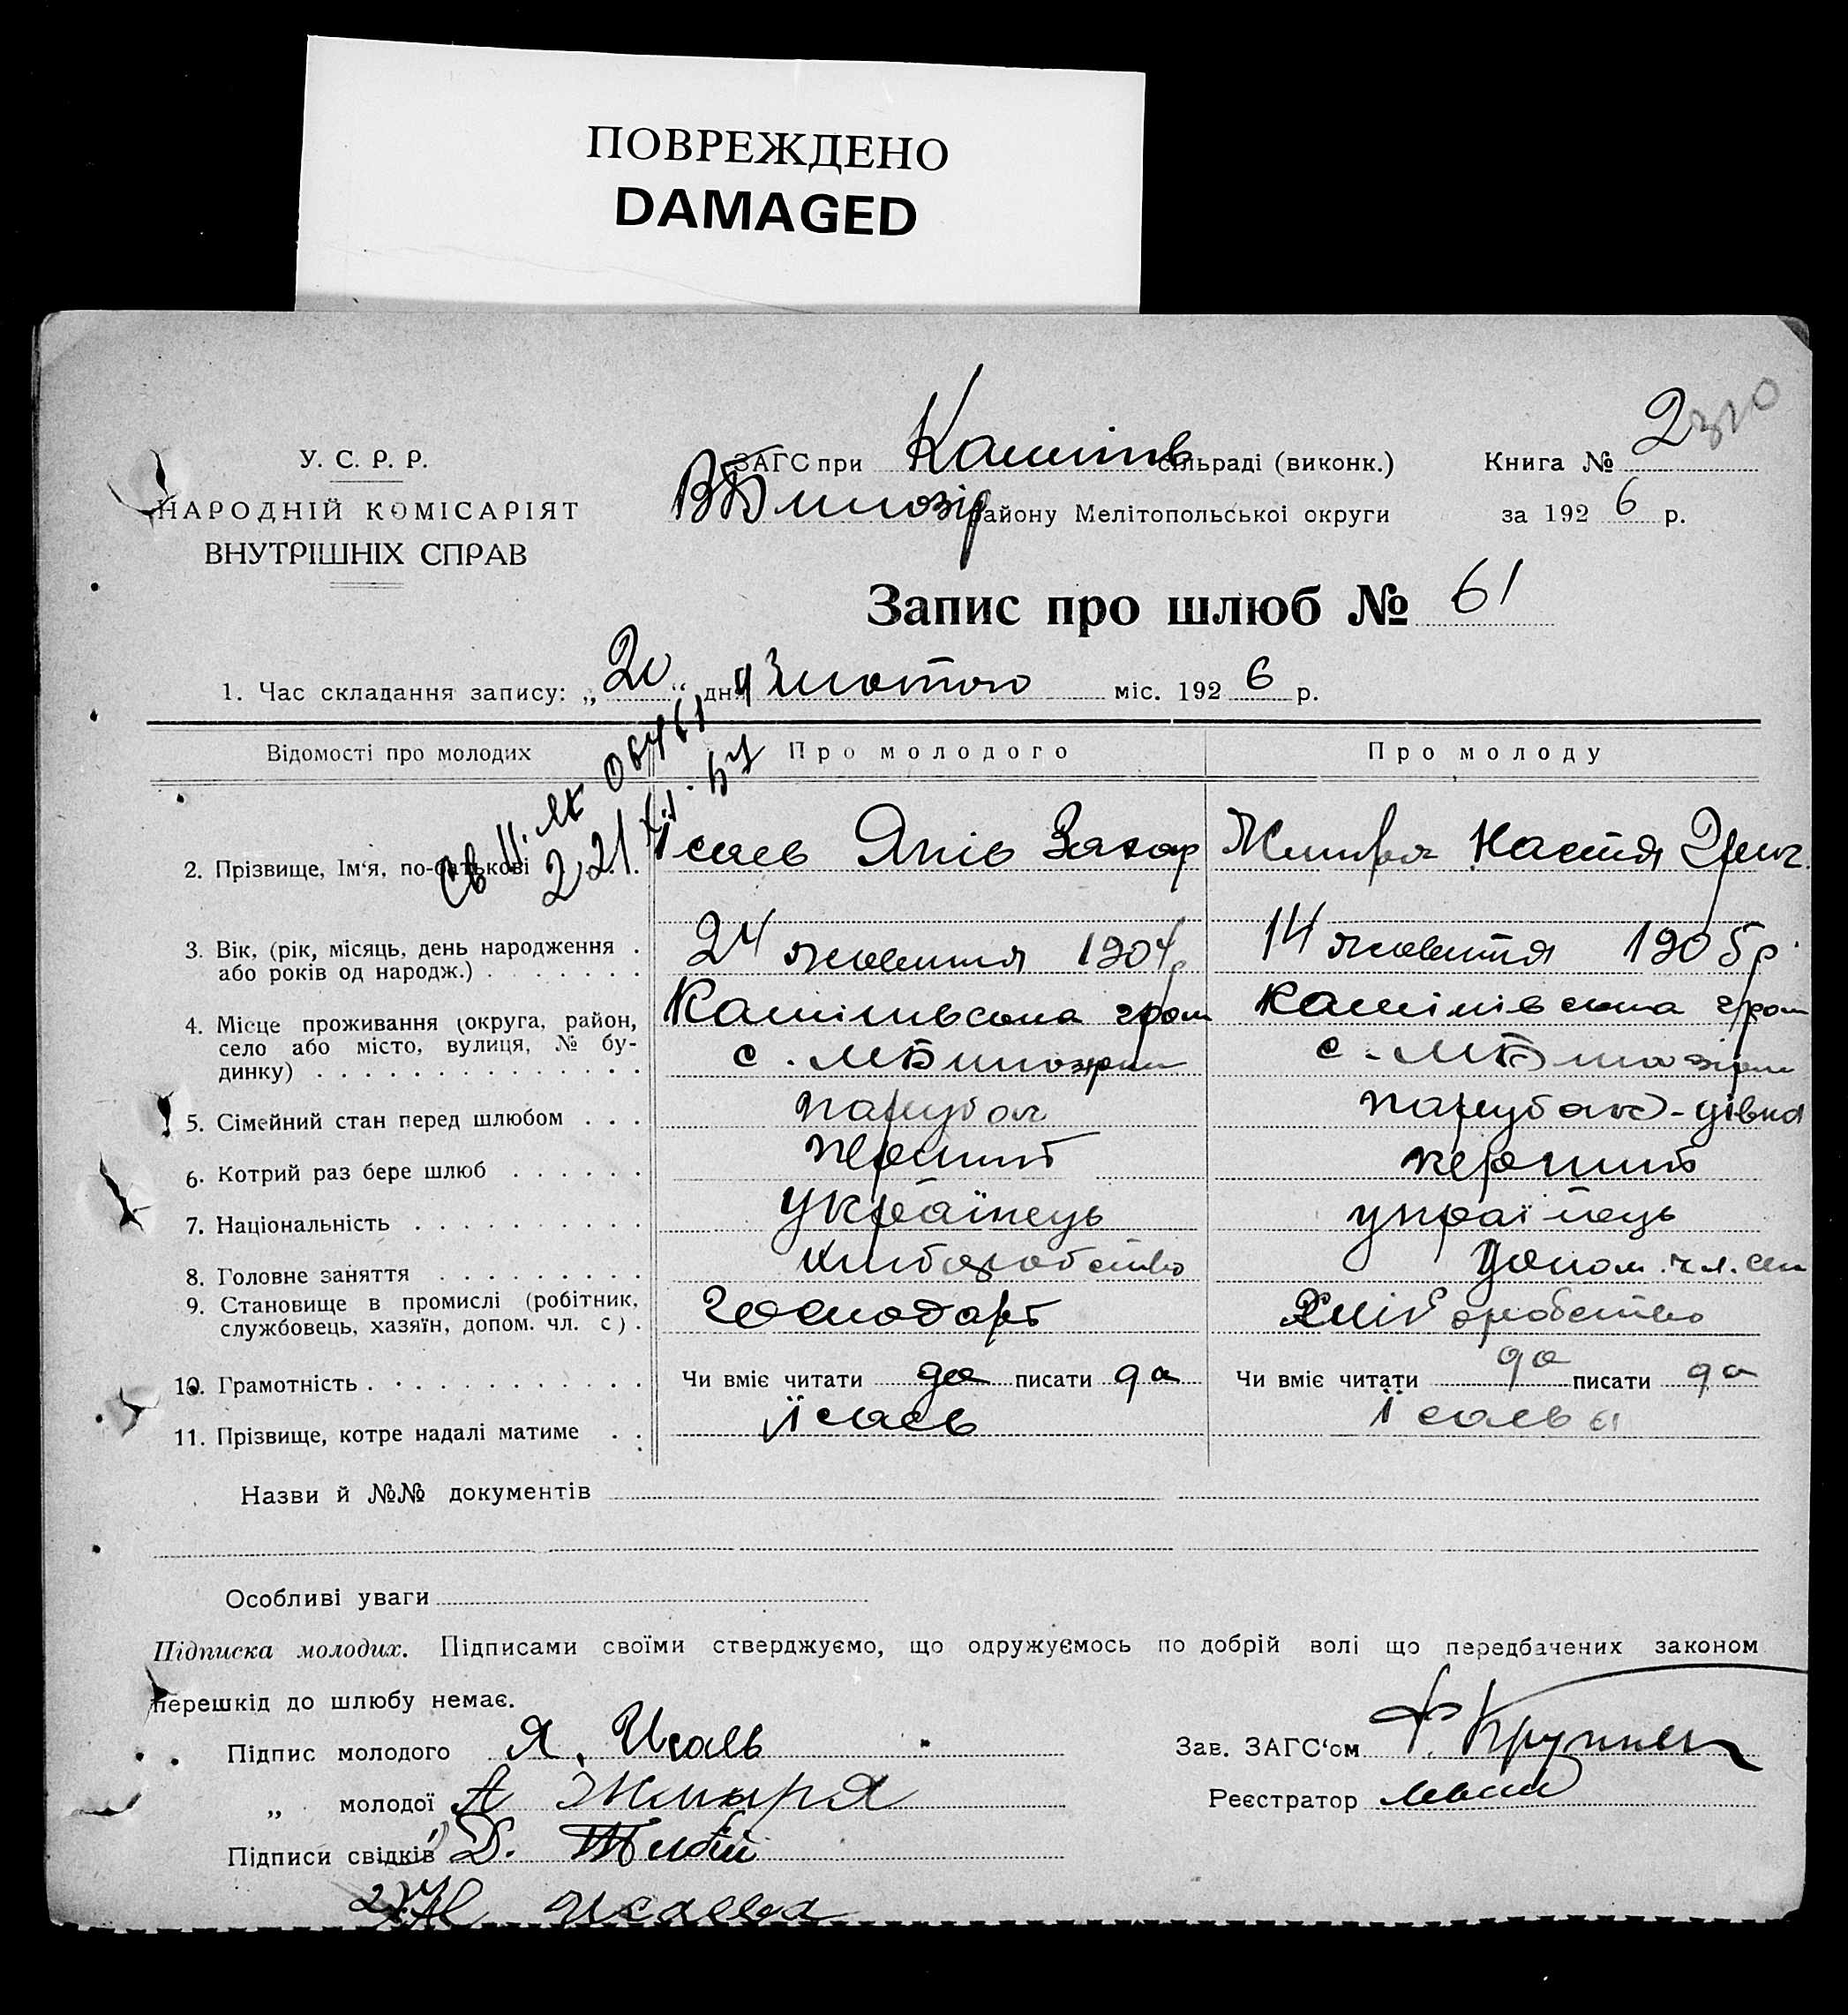 ПОВРЕЖДЕНО
DAMAGED
У. С. Р. Р.
НАРОДНІЙ КОМІСАРІЯТ
ВНУТРІШНІХ СПРАВ
ЗАГС при сільраді (виконк.)
району Мелітопольської округи
Книга № 2
за 1926 р.
Запис про шлюб № 61
1. Час складання запису: „20“ дня лютого міс. 1926 р.
Відомості про молодих
Про молодого
Про молоду
2. Прізвище, Ім‘я, по-батькові
Ісаєв Яків Захар
Жмиря Настя
3. Вік, (рік, місяць, день народження .
або років од народж.) . . . . . . .
24 жовтня 1904р
14 жовтня 1905р.
4. Місце проживання (округа, район,
село або місто, вулиця, № бу-
динку) . . . . . . . . . . . . . .
5. Сімейний стан перед шлюбом . . .
парубок
парубок - дівка
6. Котрий раз бере шлюб . . . . . .
перший
перший
7. Національність . . . . . . . . . .
українець
українець
8. Головне заняття . . . . . . . . .
хліборобство
допом. чл. сім
9. Становище в промислі (робітник,
службовець, хазяїн, допом. чл. с) .
господарь
хліборобство
10. Грамотність . . . . . . . . . . . .
Чи вміє читати да писати да
Чи вміє читати да писати да
11. Прізвище, котре надалі матиме . .
Ісаєв
Ісаєва
Назви й №№ документів
Особливі уваги
Підписка молодих. Підписами своїми стверджуємо, що одружуємось по добрій волі що передбачених законом
перешкід до шлюбу немає.
Підпис молодого Я. Исаев
Зав. ЗАГС‘ом
„ молодої А Жмыря
Реєстратор
Підписи свідків Д.
Исаева